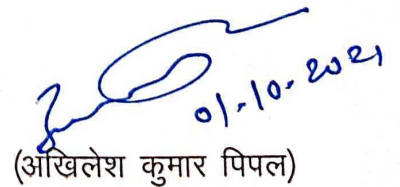 01-10-2021
(अखिलेश कुमार पिपल)